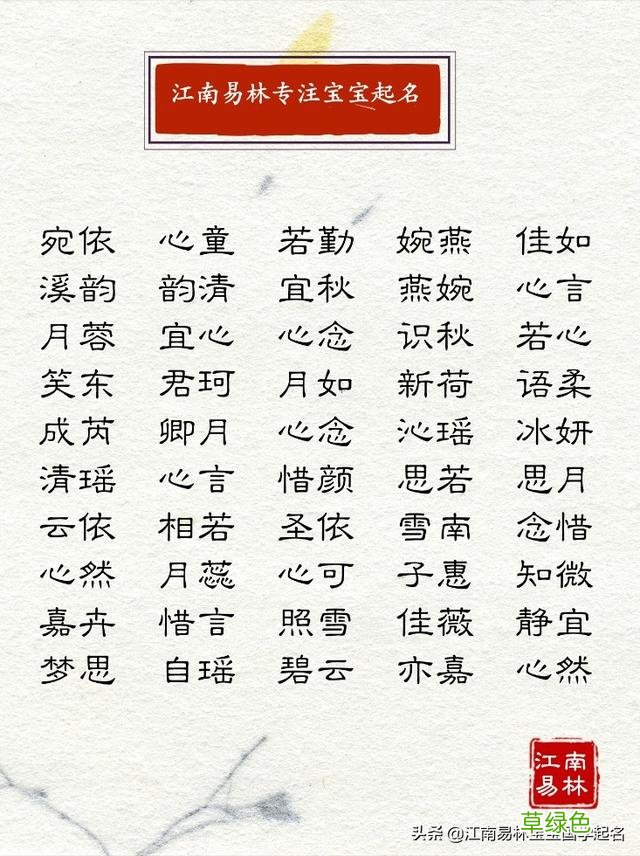 江南易林专注宝宝起名
宛依 心童 若勤 婉燕 佳如
溪韵 韵清 宜秋 燕婉 心言
月蓉 宜心 心念 识秋 若心
笑东 君珂 月如 新荷 语柔
成芮 卿月 心念 沁瑶 冰妍
清瑶 心言 惜颜 思若 思月
云依 相若 圣依 雪南 念惜
心然 月蕊 心可 子惠 知微
嘉卉 惜言 照雪 佳薇 静宜
梦思 自瑶 碧云 亦嘉 心然
江南
易林
草绿色
头条 @江南易林宝宝国学起名